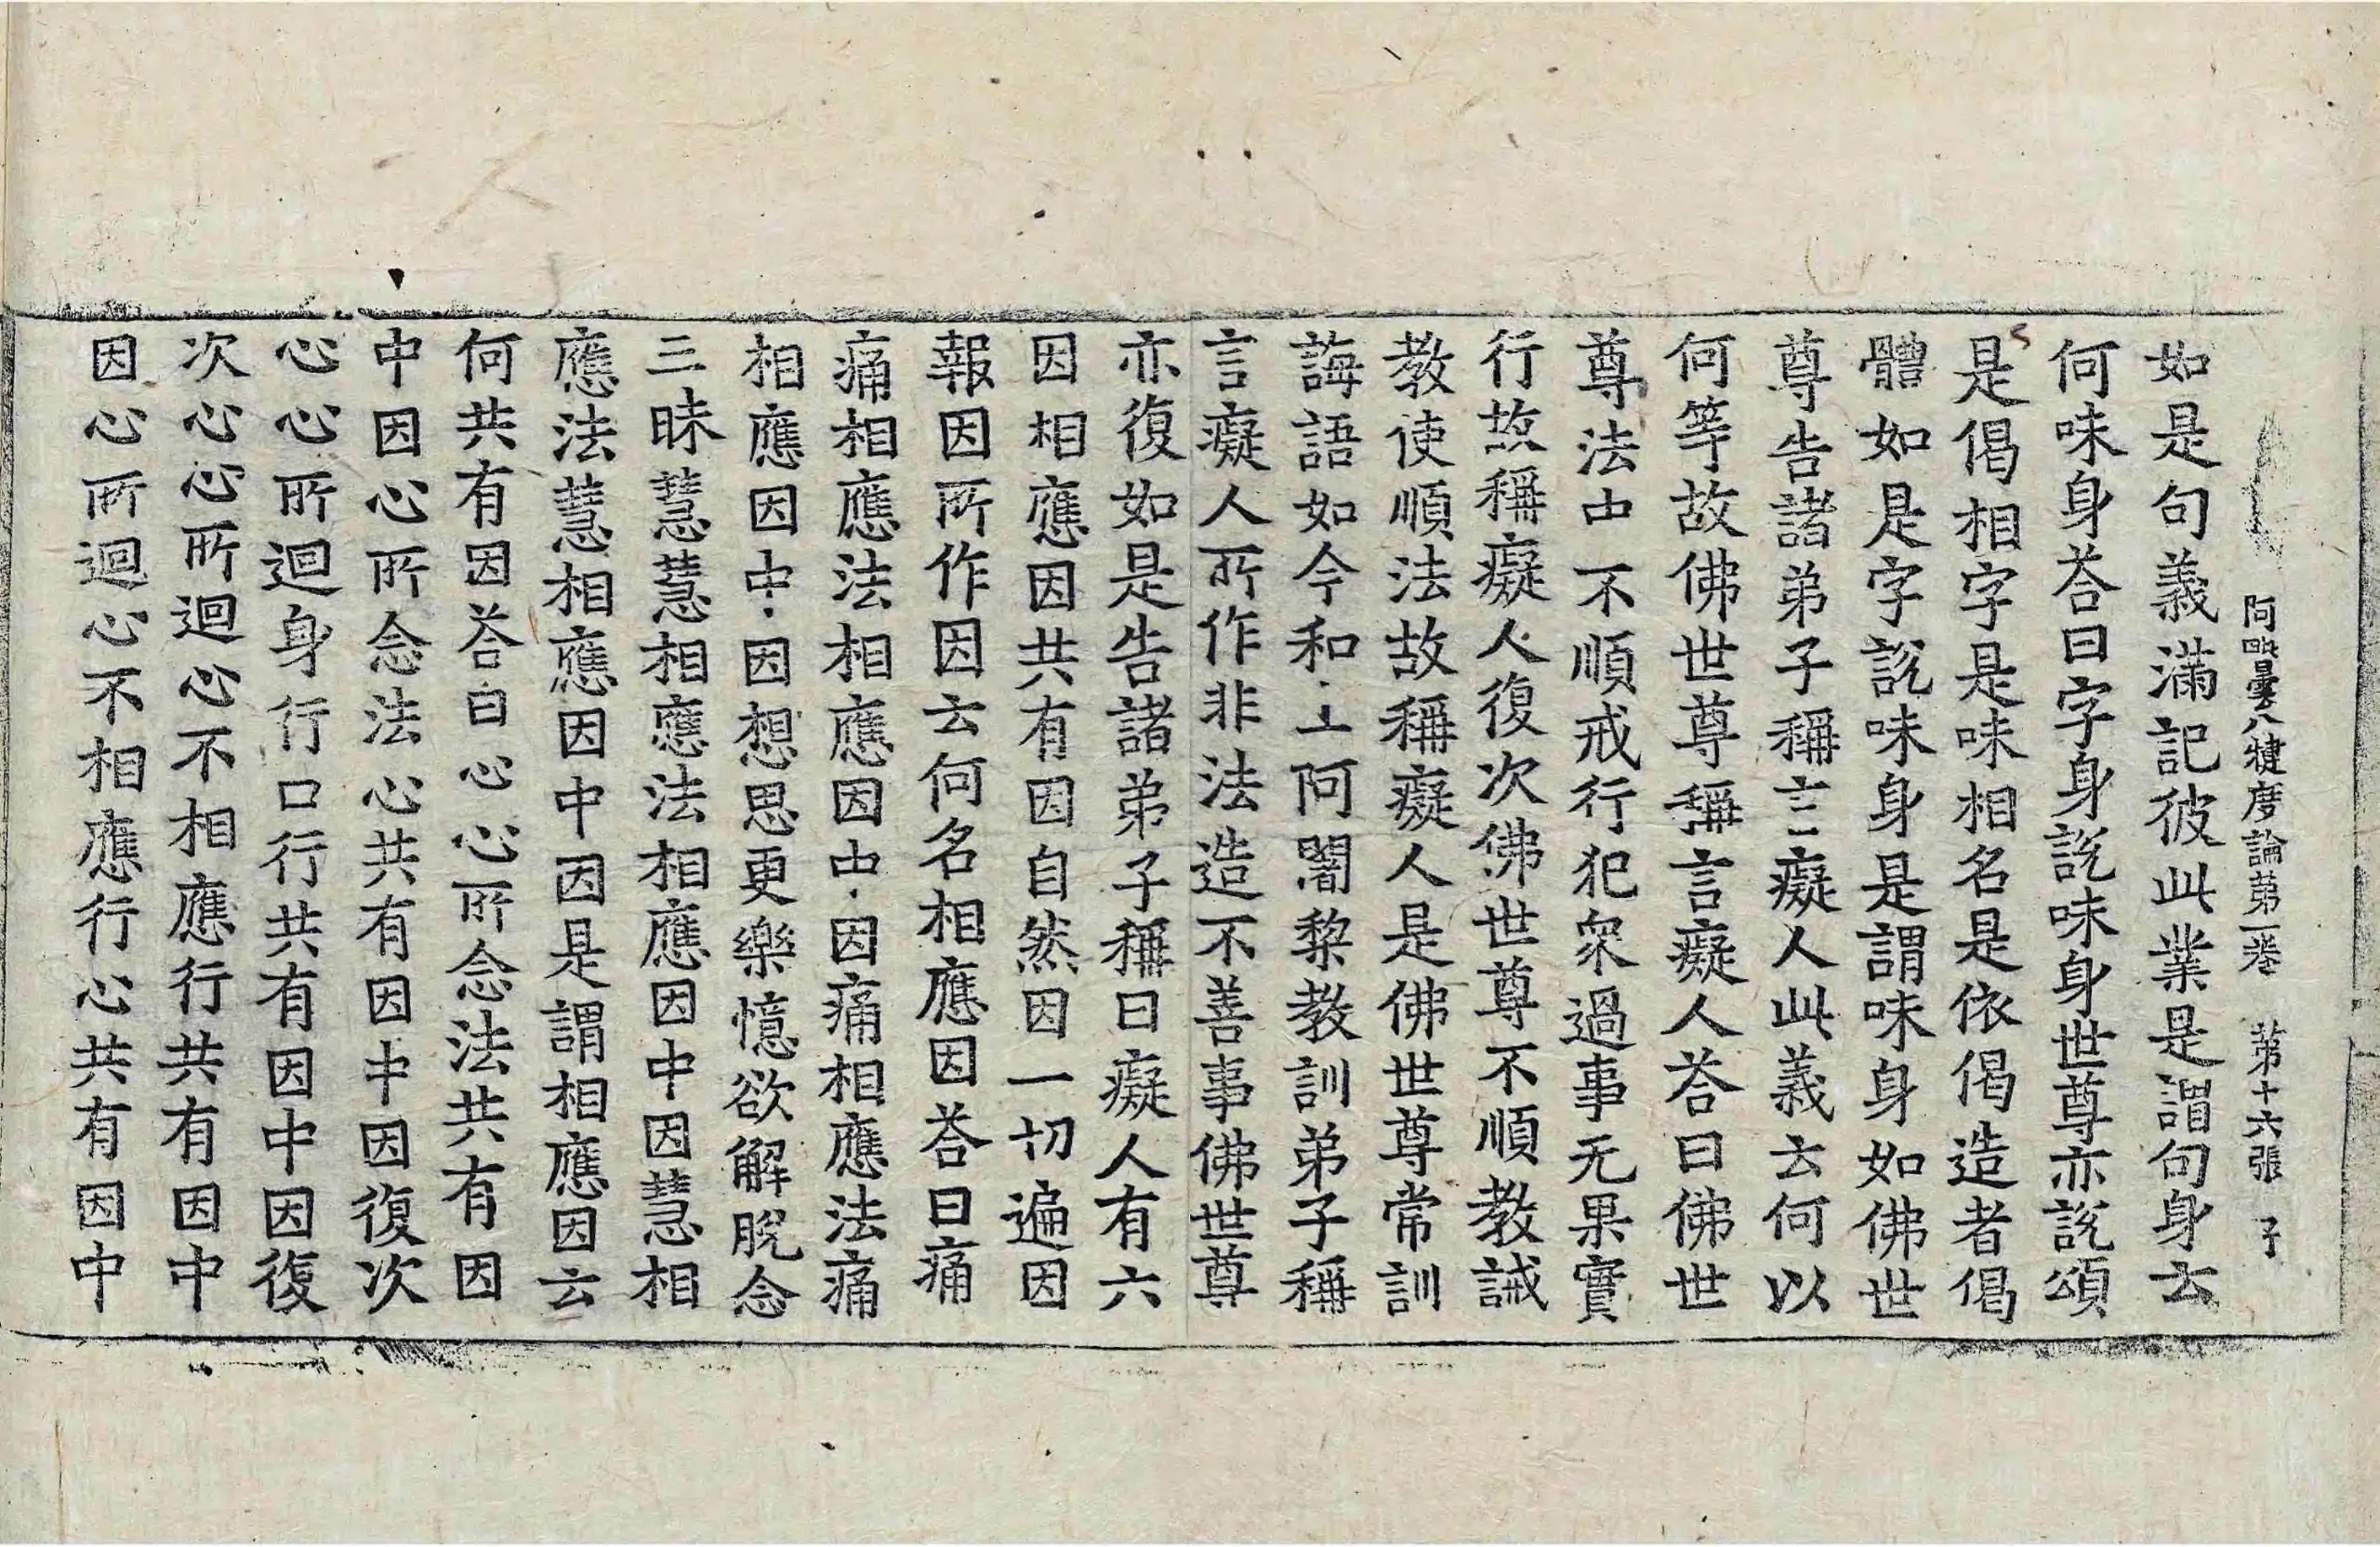 阿毗曇八犍度論第一卷 第十六張 子
如是句義滿記彼此業是謂句身云
何味身荅曰字身說味身世尊亦說頌
是偈相字是味相名是依偈造者偈
體如是字說味身是謂味身如佛世
尊告諸弟子稱言癡人此義云何以
何等故佛世尊稱言癡人荅曰佛世
尊法中不順戒行犯衆過事无果實
行故稱癡人復次佛世尊不順教誡
教使順法故稱癡人是佛世尊常訓
誨語如今和上阿闍黎教訓弟子稱
言癡人所作非法造不善事佛世尊
亦復如是告諸弟子稱曰癡人有六
因相應因共有因自然因一切遍因
報因所作因云何名相應因荅曰痛
痛相應法相應因中因痛相應法痛
相應因中因想思更樂憶欲解脫念
三昧慧慧相應法相應因中因慧相
應法慧相應因中因是謂相應因云
何共有因荅曰心心所念法共有因
中因心所念法心共有因中因復次
心心所迴身行口行共有因中因復
次心心所迴心不相應行共有因中
因心所迴心不相應行心共有因中